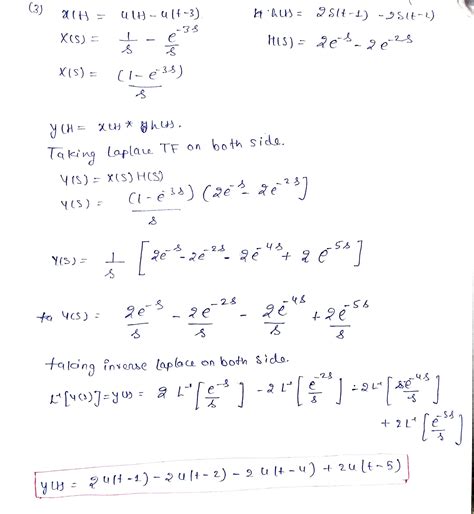 (3) x(t) = u(t) - u(t-3) h(t) = 2δ(t-1) - 2δ(t-2)
X(s) = 1/s - e^-3s/s H(s) = 2e^-s - 2e^-2s
X(s) = (1 - e^-3s)/s
y(t) = x(t) * h(t).
Taking Laplace TF on both side.
Y(s) = X(s) H(s)
Y(s) = (1 - e^-3s)/s (2e^-s - 2e^-2s]
Y(s) = 1/s [2e^-s - 2e^-2s - 2e^-4s + 2e^-5s]
Y(s) = 2e^-s/s - 2e^-2s/s - 2e^-4s/s + 2e^-5s/s
taking inverse laplace on both side.
L^-1[Y(s)] = y(t) = 2 L^-1[e^-s/s] - 2L^-1[e^-2s/s] - 2L^-1[e^-4s/s]
+ 2L^-1[e^-5s/s]
y(t) = 2u(t-1) - 2u(t-2) - 2u(t-4) + 2u(t-5)